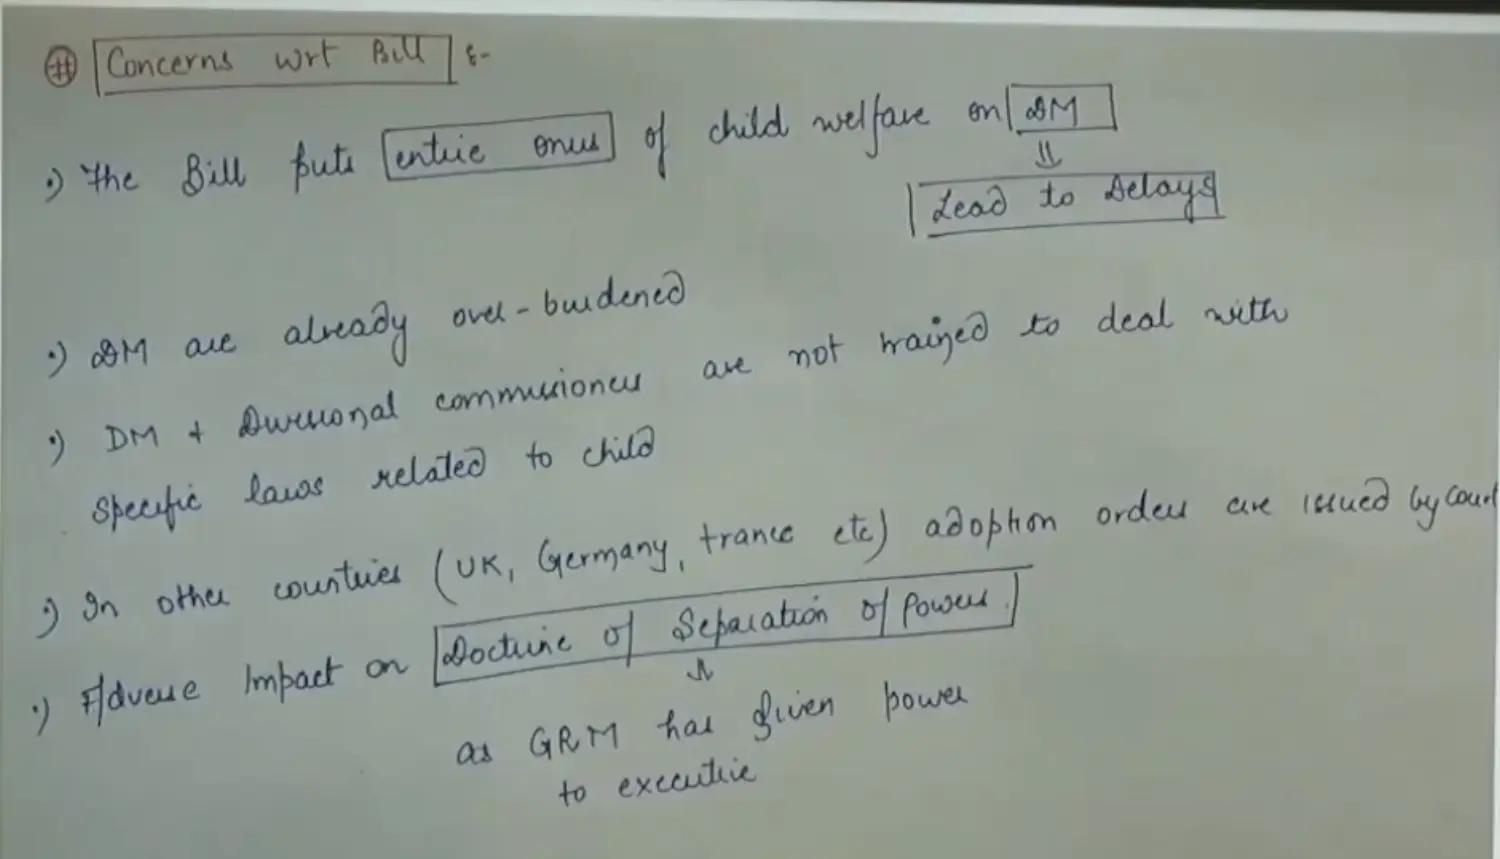 # Concerns wrt Bill :-
•) The Bill puts entire onus of child welfare on DM
⇓
Lead to Delays
•) DM are already over-burdened
•) DM + Divisional commissioners are not trained to deal with
specific laws related to child
•) In other countries (UK, Germany, France etc) adoption orders are issued by Court
•) Adverse Impact on Doctrine of Separation of Powers.
⇓
as GRM has given power
to executive